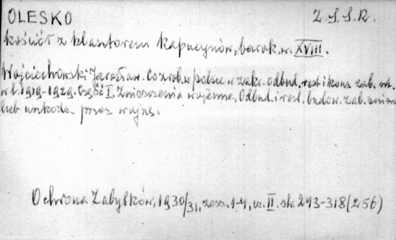 OLESKO Z.S.S.R.
kościół z klasztorem Kapucynów, barok. w. XVIII.
Wojciechowski Jarosław. Co zrob. w Polsce w zakr. odbud. rest. i kons. zab. 
w l. 1919-1929. Część I. Zniszczenia wojenne. Odbud. i rest. budow. zab. zniszcz.
lub uszkodz. przez wojnę.
Ochrona Zabytków, 1930/31, zesz. 1-4, cz. II. str. 293-318 (256)